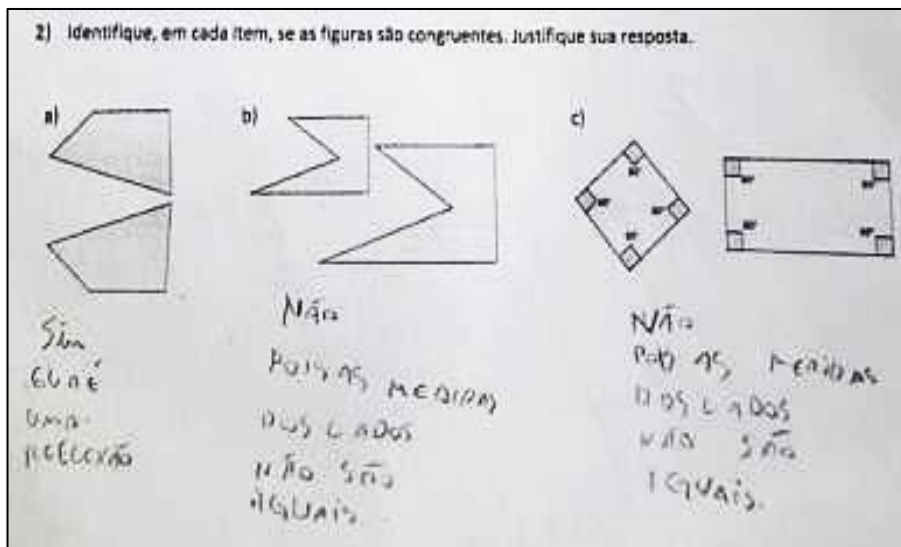 2) Identifique, em cada item, se as figuras são congruentes. Justifique sua resposta.
a)
b)
c)
90°
90°
90°
90°
90°
90°
90°
90°
Sim
É UMA
REFLEXÃO
NÃO
POIS AS MEDIDAS
DOS LADOS
NÃO SÃO
IGUAIS.
NÃO
POIS AS MEDIDAS
DOS LADOS
NÃO SÃO
IGUAIS.